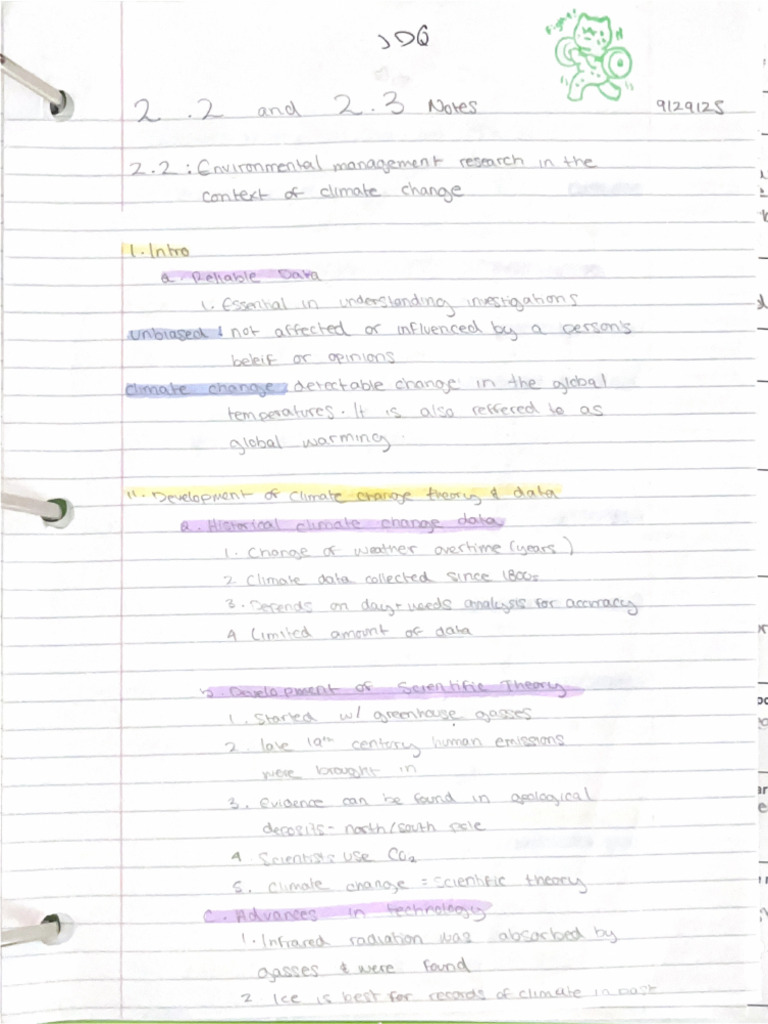 JDQ
2.2 and 2.3 Notes 9/29/25
2.2: Environmental management research in the
context of climate change
1. Intro
a. Reliable Data
1. Essential in understanding investigations
unbiased: not affected or influenced by a person's
beleif or opinions
climate change: detectable change in the global
temperatures. It is also reffered to as
global warming.
11. Development of climate change theory & data
a. Historical climate change data
1. Change of weather overtime (years)
2. Climate data collected since 1800s
3. Depends on day + needs analysis for accuracy
4 Limited amount of data
b. Development of Scientific Theory
1. Started w/ greenhouse gasses
2. late 19th century human emissions
were brought in
3. Evidence can be found in geological
deposits - north/south pole
4. Scientists use CO2
5. Climate change = scientific theory
C. Advances in technology
1. Infrared radiation was absorbed by
gasses & were found
2 Ice is best for records of climate in past